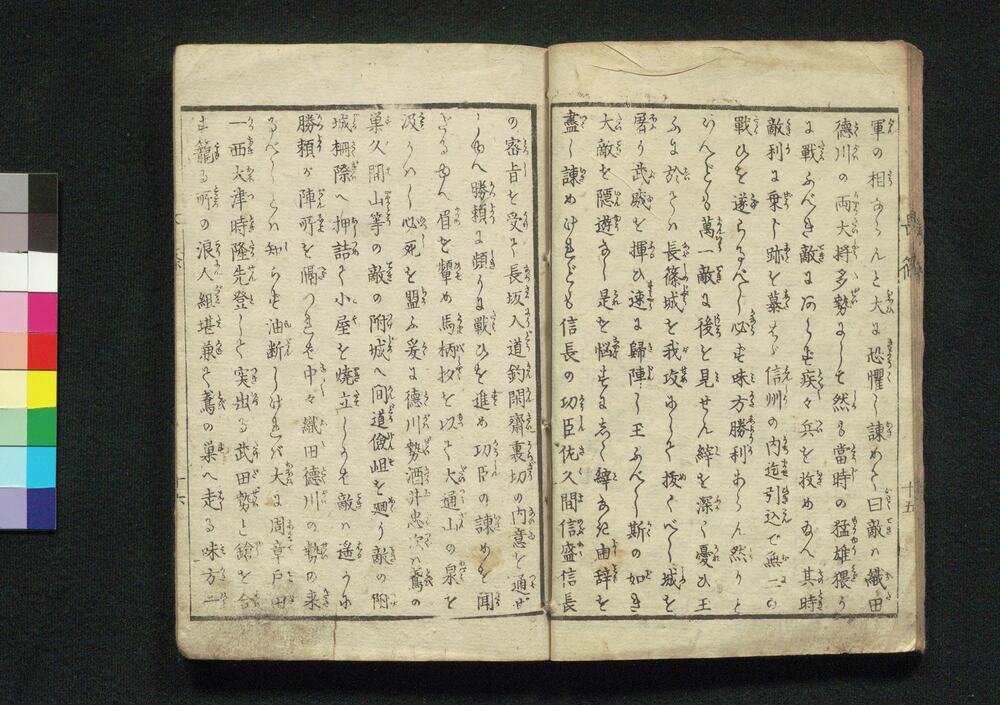 軍の相ならんと大に恐懼し諫めて曰敵ハ織田
徳川の両大将多勢にして然も當時の猛雄猥り
に戦ふべき敵にあらず疾々兵を收め給へ其時
敵利に乗り跡を慕ハゞ信州の内迄引込で無二の
戦ひを遂らるべし必ず味方勝利あらん然りと
いへども萬一敵に後を見せん事を深く憂ひ玉
ふに於てハ長篠城を我攻にして抜くべし城を
屠り武威を揮ひ速に歸陣し玉ふべし斯の如き
大敵を隠遊なし是を悩すにあらじ事を曲辞を
盡し諫めけれども信長の功臣佐久間信盛信長
の密旨を受て長坂入道釣閑齋裏切の内意を通ぜ
しゆへ勝頼は頻りに戦ひを進め功臣の諫めを聞
ざるゆへ眉を顰め馬柄杓を以て大通山の泉を
汲かハし必死を盟ふ爰に徳川勢酒井忠次ハ鳶の
巣久間山等の敵の附城へ間道儉岨を廻り敵の附
城柵際へ押詰て小屋を焼立しかば敵ハ遙かに
勝頼が陣所を隔つれば中々織田徳川の勢の来
るべしとハ知らず油断しければ大に周章戸田
一西大津時隆先登して突出る武田勢と鎗を合
す籠る所の浪人組堪兼て鳶の巣へ走る味方二
十五
十六